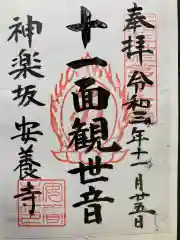 奉拝 令和二年十一月廿五日
十一面観世音
神楽坂 安養寺